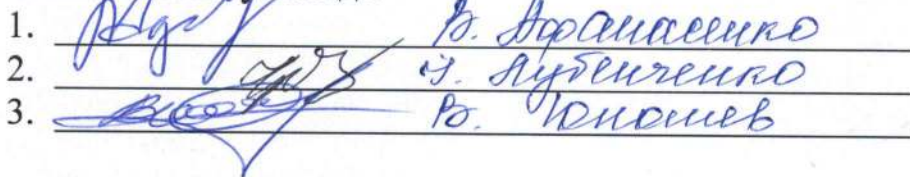 1. В. Афанасенко
2. Лубенченко
3. В. Юношев